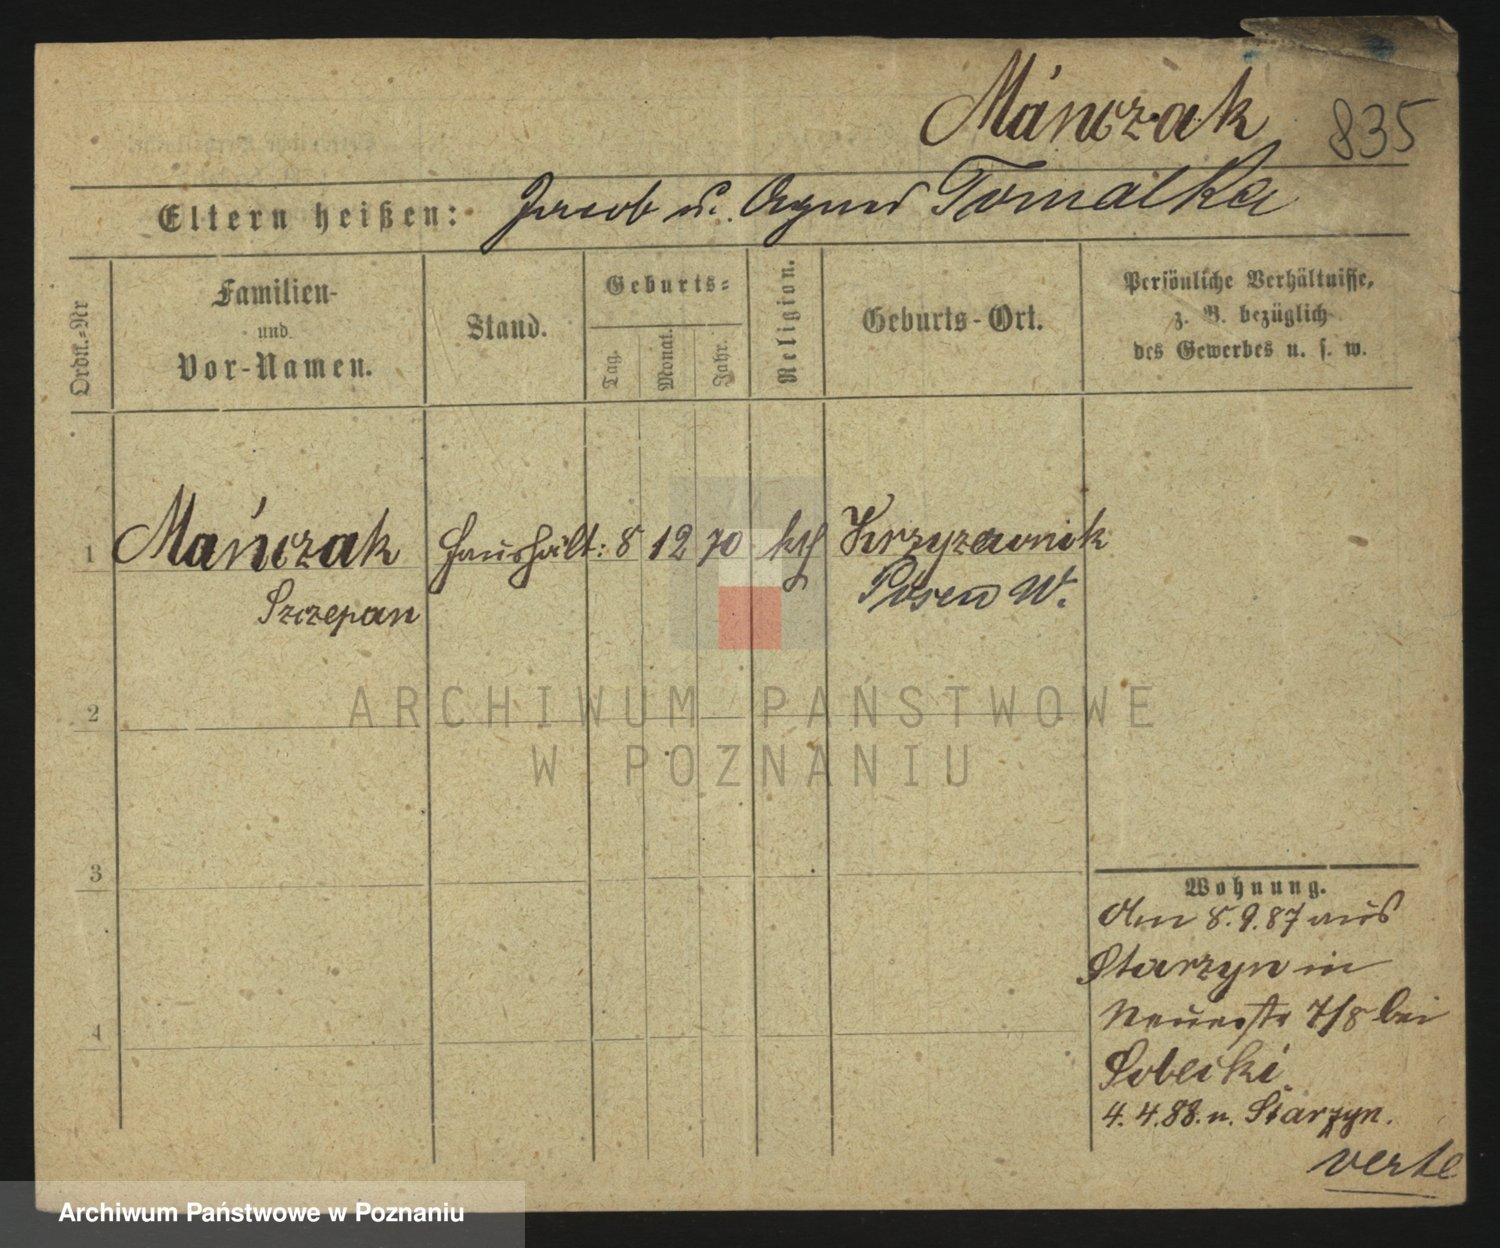 Mánczak
835
Eltern heißen: Jacob u. Agnes Tomalka
Ordn.-Nr
Familien-
und
Vor-Namen.
Stand.
Geburts-
Tag.
Monat.
Jahr.
Religion.
Geburts-Ort.
Persönliche Verhältnisse,
z. B. bezüglich
des Gewerbes u. s. w.
1 Mańczak Haushält: 8 12 70 kth Krzyzownik
Szczepan Posen W.
2
ARCHIWUM PAŃSTWOWE
W POZNANIU
3
Wohnung.
Am 8.9.87 aus
Starzyn in
Neuestr 7/8 bei
Sobecki
4
4.4.88. n. Starzyn.
verte
Archiwum Państwowe w Poznaniu